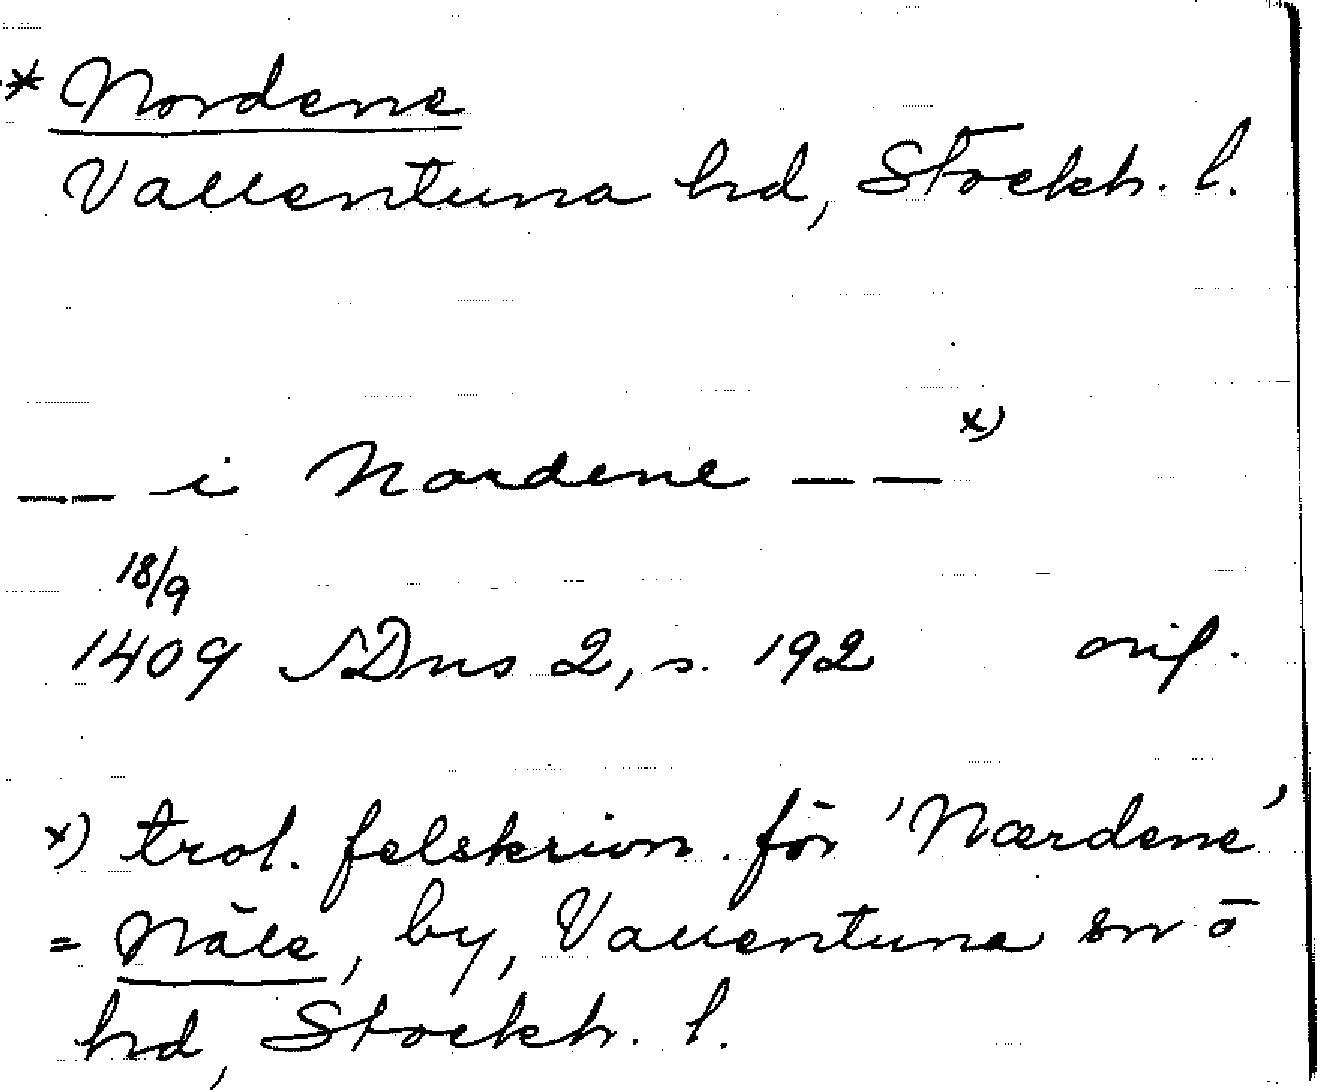 * Nordene
Vallentuna hd, Stockh. l.
x)
— — i Nordene — —
18/9
1409 SDns 2, s. 192 orig.
x) trol. felskrivn. för 'Nærdene'
= Näle, by, Vallentuna sn o
hd, Stockh. l.